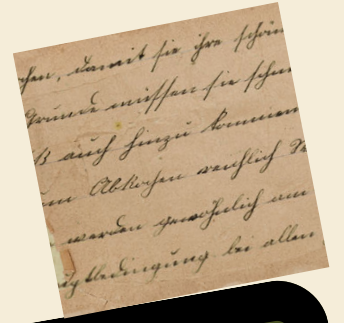 chen, damit sie ihre schön
Grunde müssen sie schn
ß auch hinzu kommen
Abkochen reichlich
werden gewöhnlich am
bedingung bei allen